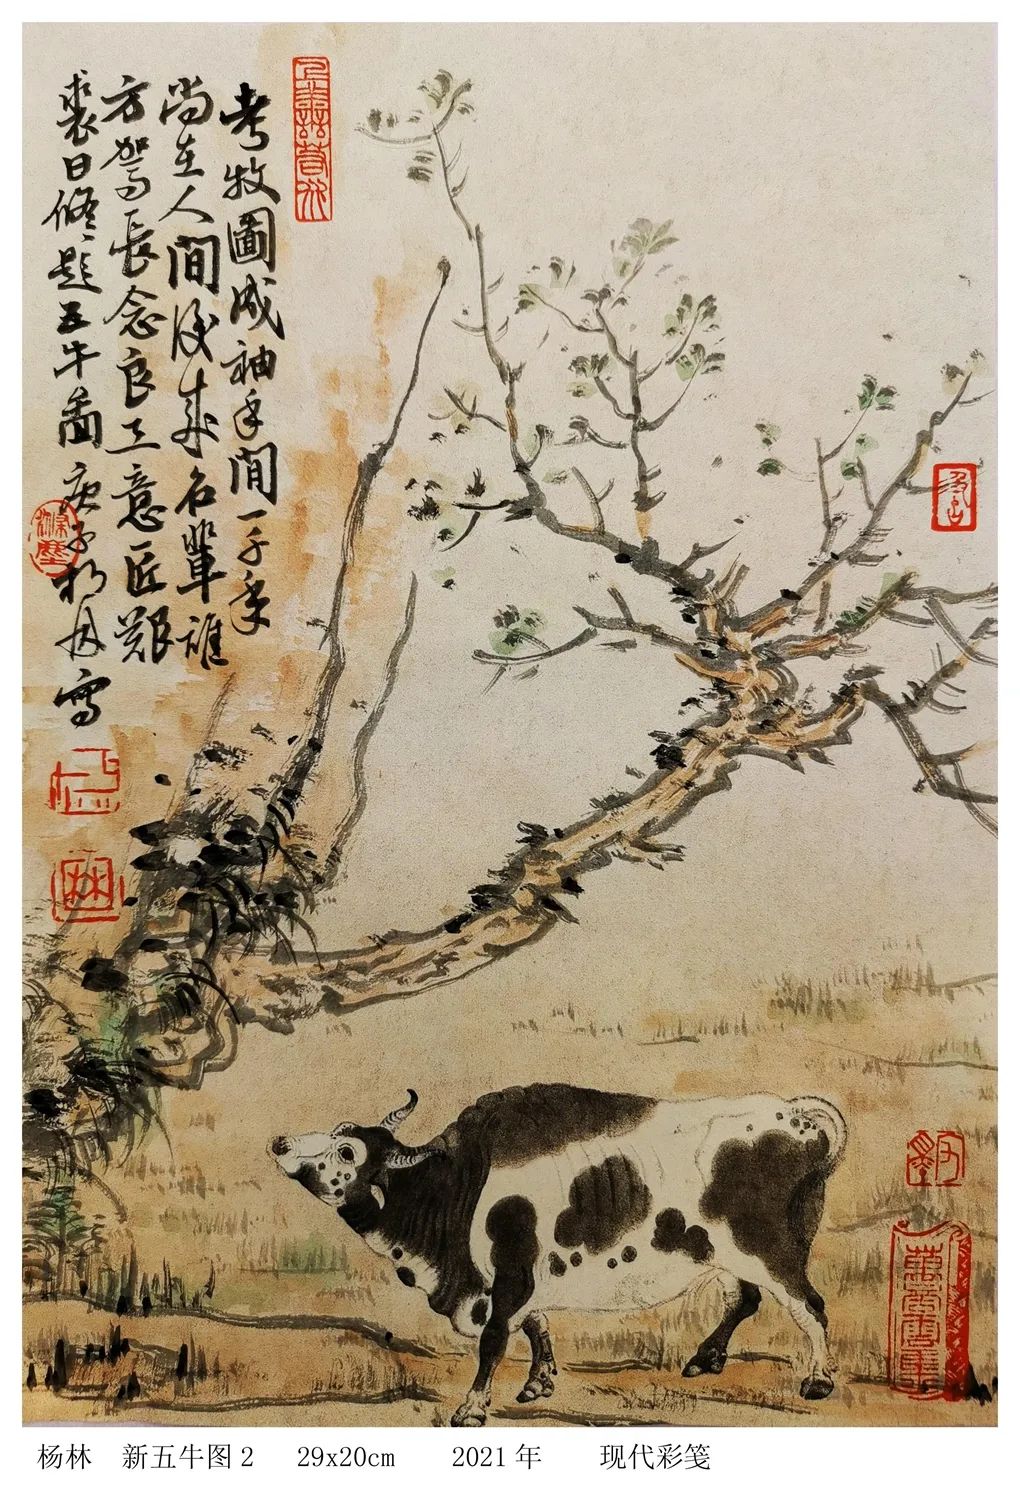 考牧圖成袖手間一千年
尚在人間後来名輩誰
方駕長念良工意匠艱
裘曰修題五牛圖庚子杨林写
杨林 新五牛图2 29x20cm 2021年 现代彩笺